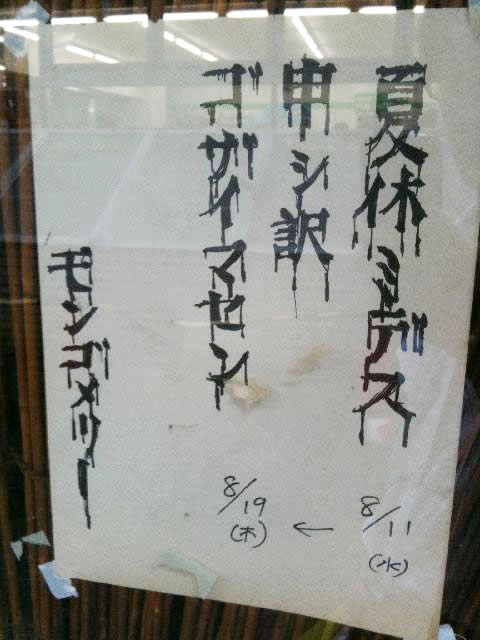 夏休ミデス
申シ訳
ゴザイマセン
モンゴメリー
8/11
(水)
←
8/19
(木)